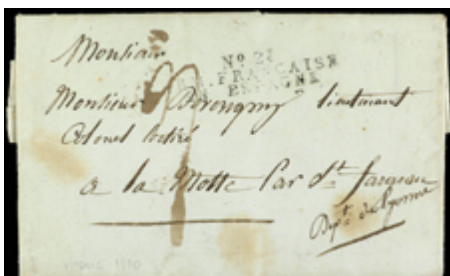 Monsieur
Nº 2
FRANÇAISE
ESPAGNE
Monsieur lieutenant
Colonel retiré
a la Motte Par St. fargeau
Dépt. de Lyonne